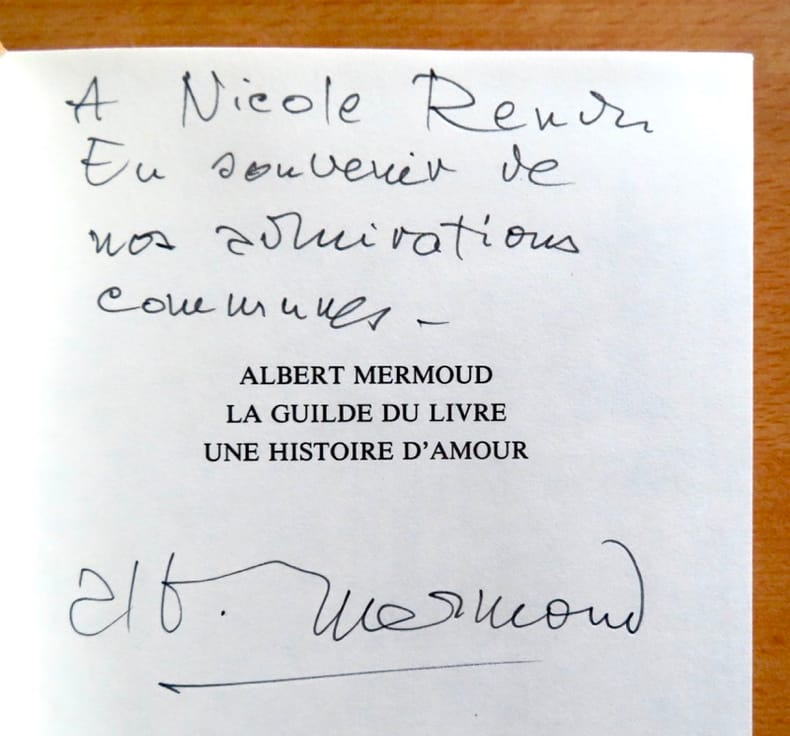 A Nicole
En souvenir de
nos admirations
communes –
ALBERT MERMOUD
LA GUILDE DU LIVRE
UNE HISTOIRE D'AMOUR
alb. Mermoud